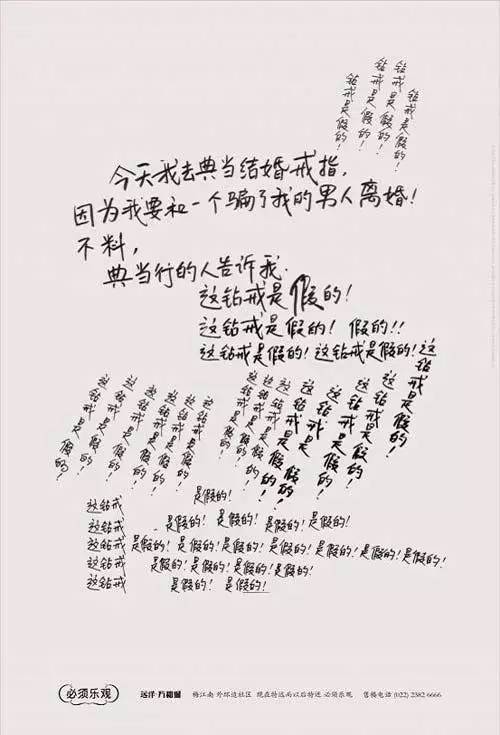 钻戒是假的!
钻戒是假的!
钻戒是假的!
钻戒是假的!
今天我去典当结婚戒指,
因为我要和一个骗了我的男人离婚!
不料,
典当行的人告诉我.
这钻戒是假的!
这钻戒是假的! 假的!!
这钻戒是假的!这钻戒是假的!这钻戒是假的!
这钻戒是假的!
这钻戒是假的!
这钻戒是假的!
这钻戒是假的!
这钻戒是假的!
这钻戒是假的!
这钻戒是假的!
这钻戒是假的!
这钻戒是假的!
这钻戒是假的!
这钻戒是假的!
这钻戒是假的!
是假的!
这钻戒
这钻戒 是假的! 是假的! 是假的!是假的!
这钻戒 是假的!是假的!是假的!是假的!是假的!是假的!是假的!
这钻戒 是假的!是假的!是假的!是假的!
这钻戒 是假的! 是假的!
必须乐观 远洋·万和城 梅江南 外环边社区 现在特远而以后特近 必须乐观 售楼电话 (022) 2382 6666